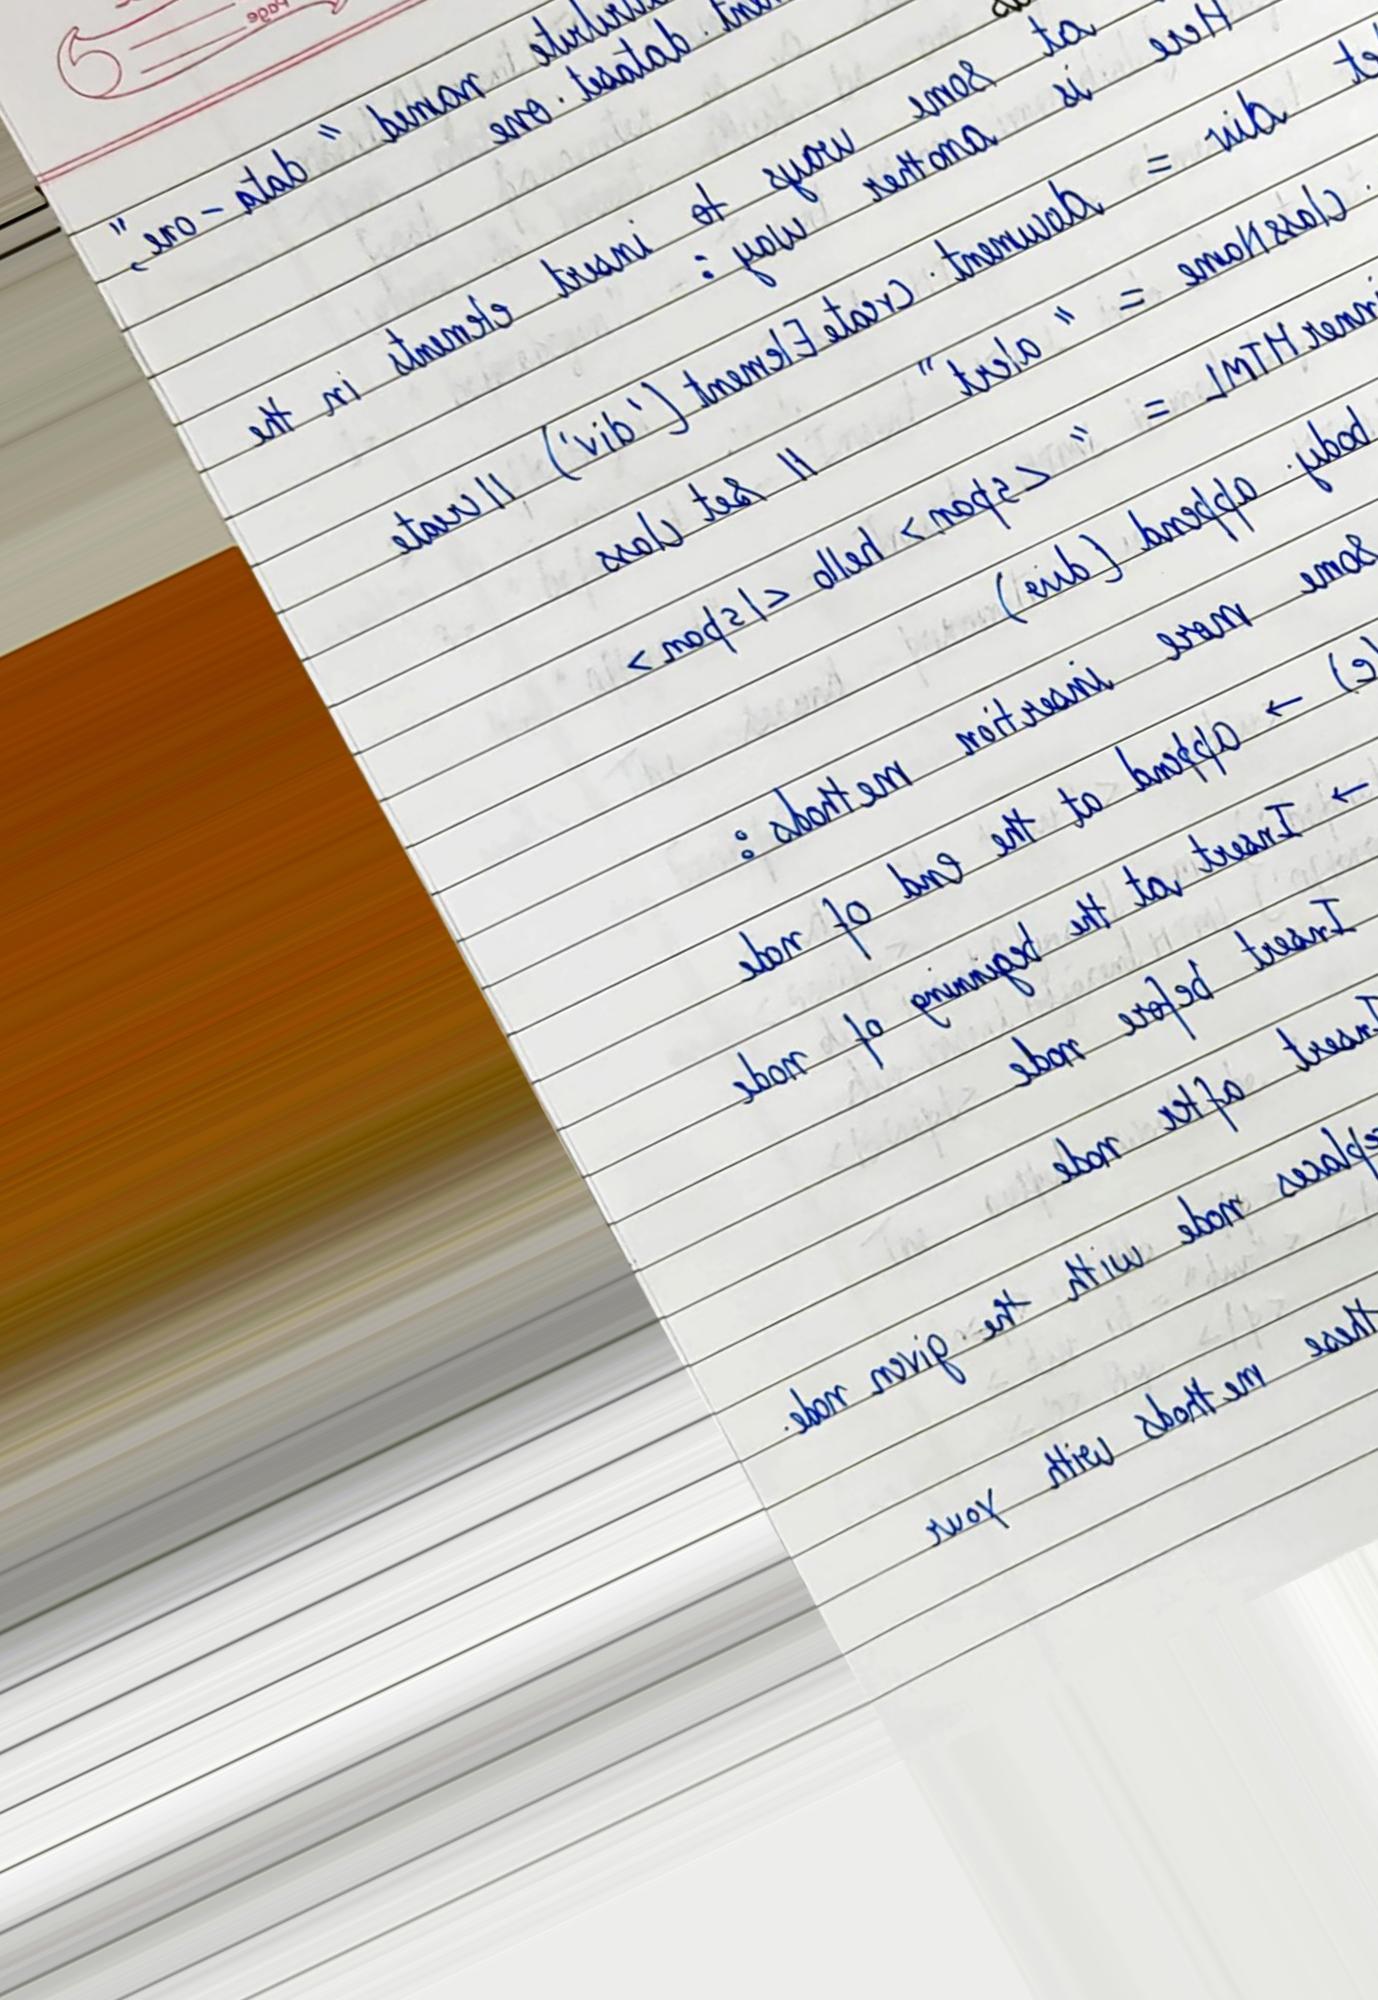 Page
named "data-one",
dataset.one
at some ways to insert elements in the
Here is another way :
div = document.createElement('div') // create
.className = "alert" // Set class
innerHTML = "<span> hello </span>
body.append(div)
Some more insertion methods :
(e) → append at the end of node
→ Insert at the beginning of node
Insert before node
Insert after node
replaces node with the given node.
these methods with your